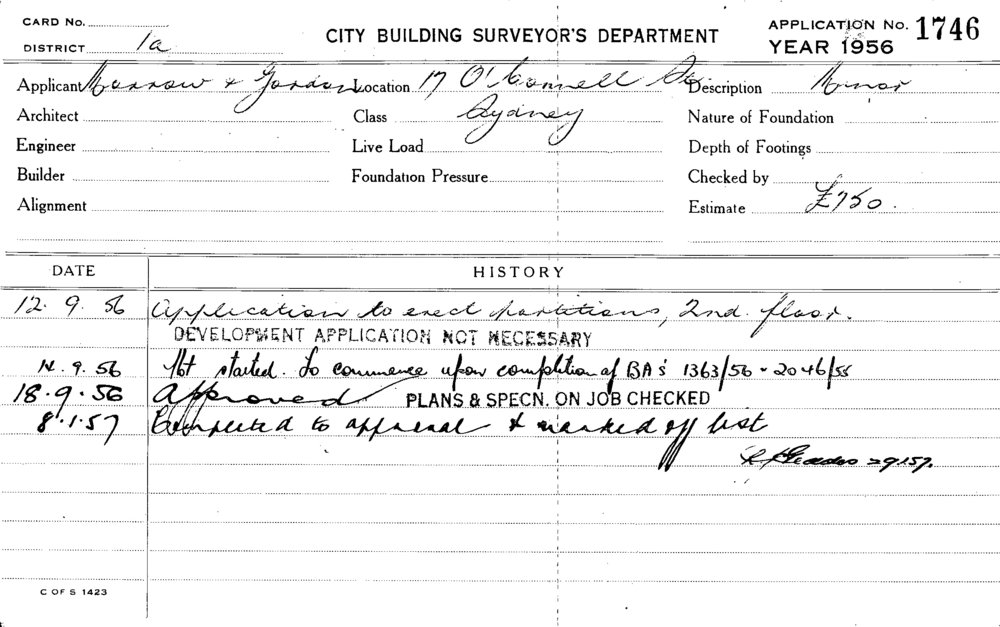 CARD No.
DISTRICT 1a
CITY BUILDING SURVEYOR'S DEPARTMENT
APPLICATION No. 1746
YEAR 1956
Applicant Morrow & Gordon Location 17 O'Connell St Description Minor
Architect Class Sydney Nature of Foundation
Engineer Live Load Depth of Footings
Builder Foundation Pressure Checked by
Alignment Estimate £750.
DATE HISTORY
12. 9. 56 Application to erect partitions, 2nd. floor.
DEVELOPMENT APPLICATION NOT NECESSARY
14. 9. 56 Not started. To commence upon completion of BA's 1363/56 - 2046/55
18. 9. 56 Approved PLANS & SPECN. ON JOB CHECKED
8. 1. 57 Completed to approval & marked off list
C OF S 1423